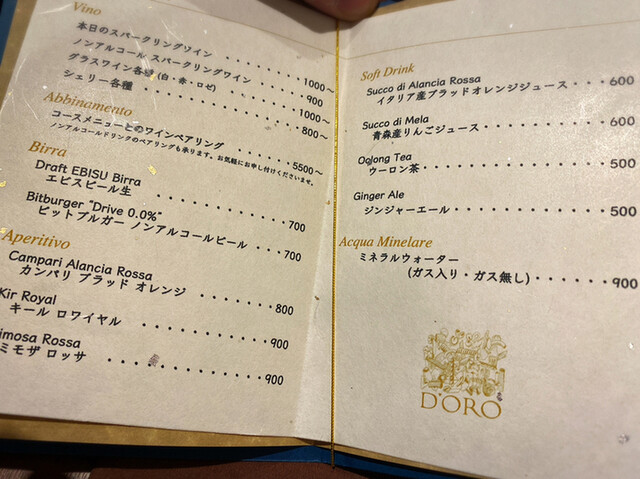 Vino
本日のスパークリングワイン ・・・・・・・・ 1000～
ノンアルコール スパークリングワイン ・・・・ 900
グラスワイン各種 (白・赤・ロゼ) ・・・・・・・ 1000～
シェリー各種 ・・・・・・・・・・・・・・ 800～
Abbinamento
コースメニューとのワインペアリング ・・・・・・ 5500～
ノンアルコールドリンクのペアリングも承ります。お気軽にお申し付けくださいませ。
Birra
Draft EBISU Birra
エビスビール生 ・・・・・・・・・・・・ 700
Bitburger "Drive 0.0%"
ビットブルガー ノンアルコールビール ・・・ 700
Aperitivo
Campari Alancia Rossa
カンパリ ブラッド オレンジ ・・・・・・・ 800
Kir Royal
キール ロワイヤル ・・・・・・・・・・・ 900
imosa Rossa
ミモザ ロッサ ・・・・・・・・・・・・・ 900
Soft Drink
Succo di Alancia Rossa
イタリア産ブラッドオレンジジュース・・・ 600
Succo di Mela
青森産りんごジュース ・・・・・・・・・・ 600
Oolong Tea
ウーロン茶・・・・・・・・・・・・・・・ 500
Ginger Ale
ジンジャーエール・・・・・・・・・・・・ 500
Acqua Minelare
ミネラルウォーター
(ガス入り・ガス無し)・・・・・・ 900
D'ORO